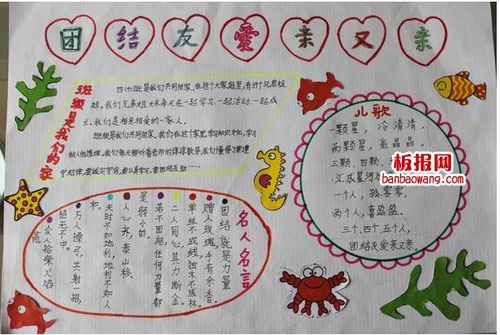 团结友爱亲又亲
班级是我们的家
四(1)班是我们共同的家,在这个大家庭里,有许个兄弟姐
妹,我们兄弟姐妹每天在一起学习,一起活动,一起成
长,我们是相亲相爱的一家人。
班级是我们共同的家,我们在这个家里,学习知识文化,学习
做人的道理。我们每天聆听着老师的谆谆教导,我们懂得了要遵
守纪律,
儿歌
一颗星,冷清清,
两颗星,亮晶晶。
三颗、四颗、
汇成星河
一个人,孤零零,
两个人,喜盈盈。
三个、四个、五个人,
团结友爱亲又亲。
板报网
banbaowang.com
名人名言
团结就是力量
赠人玫瑰,手有余香。
单丝不成线,独木不成林。
二人同心,其力断金。
若不团结,任何力量都
是弱小的。
人心齐,泰山移。
天时不如地利,地利不如人
和。
万人操弓,共射一招,
招无不中。
众人拾柴火焰
高。